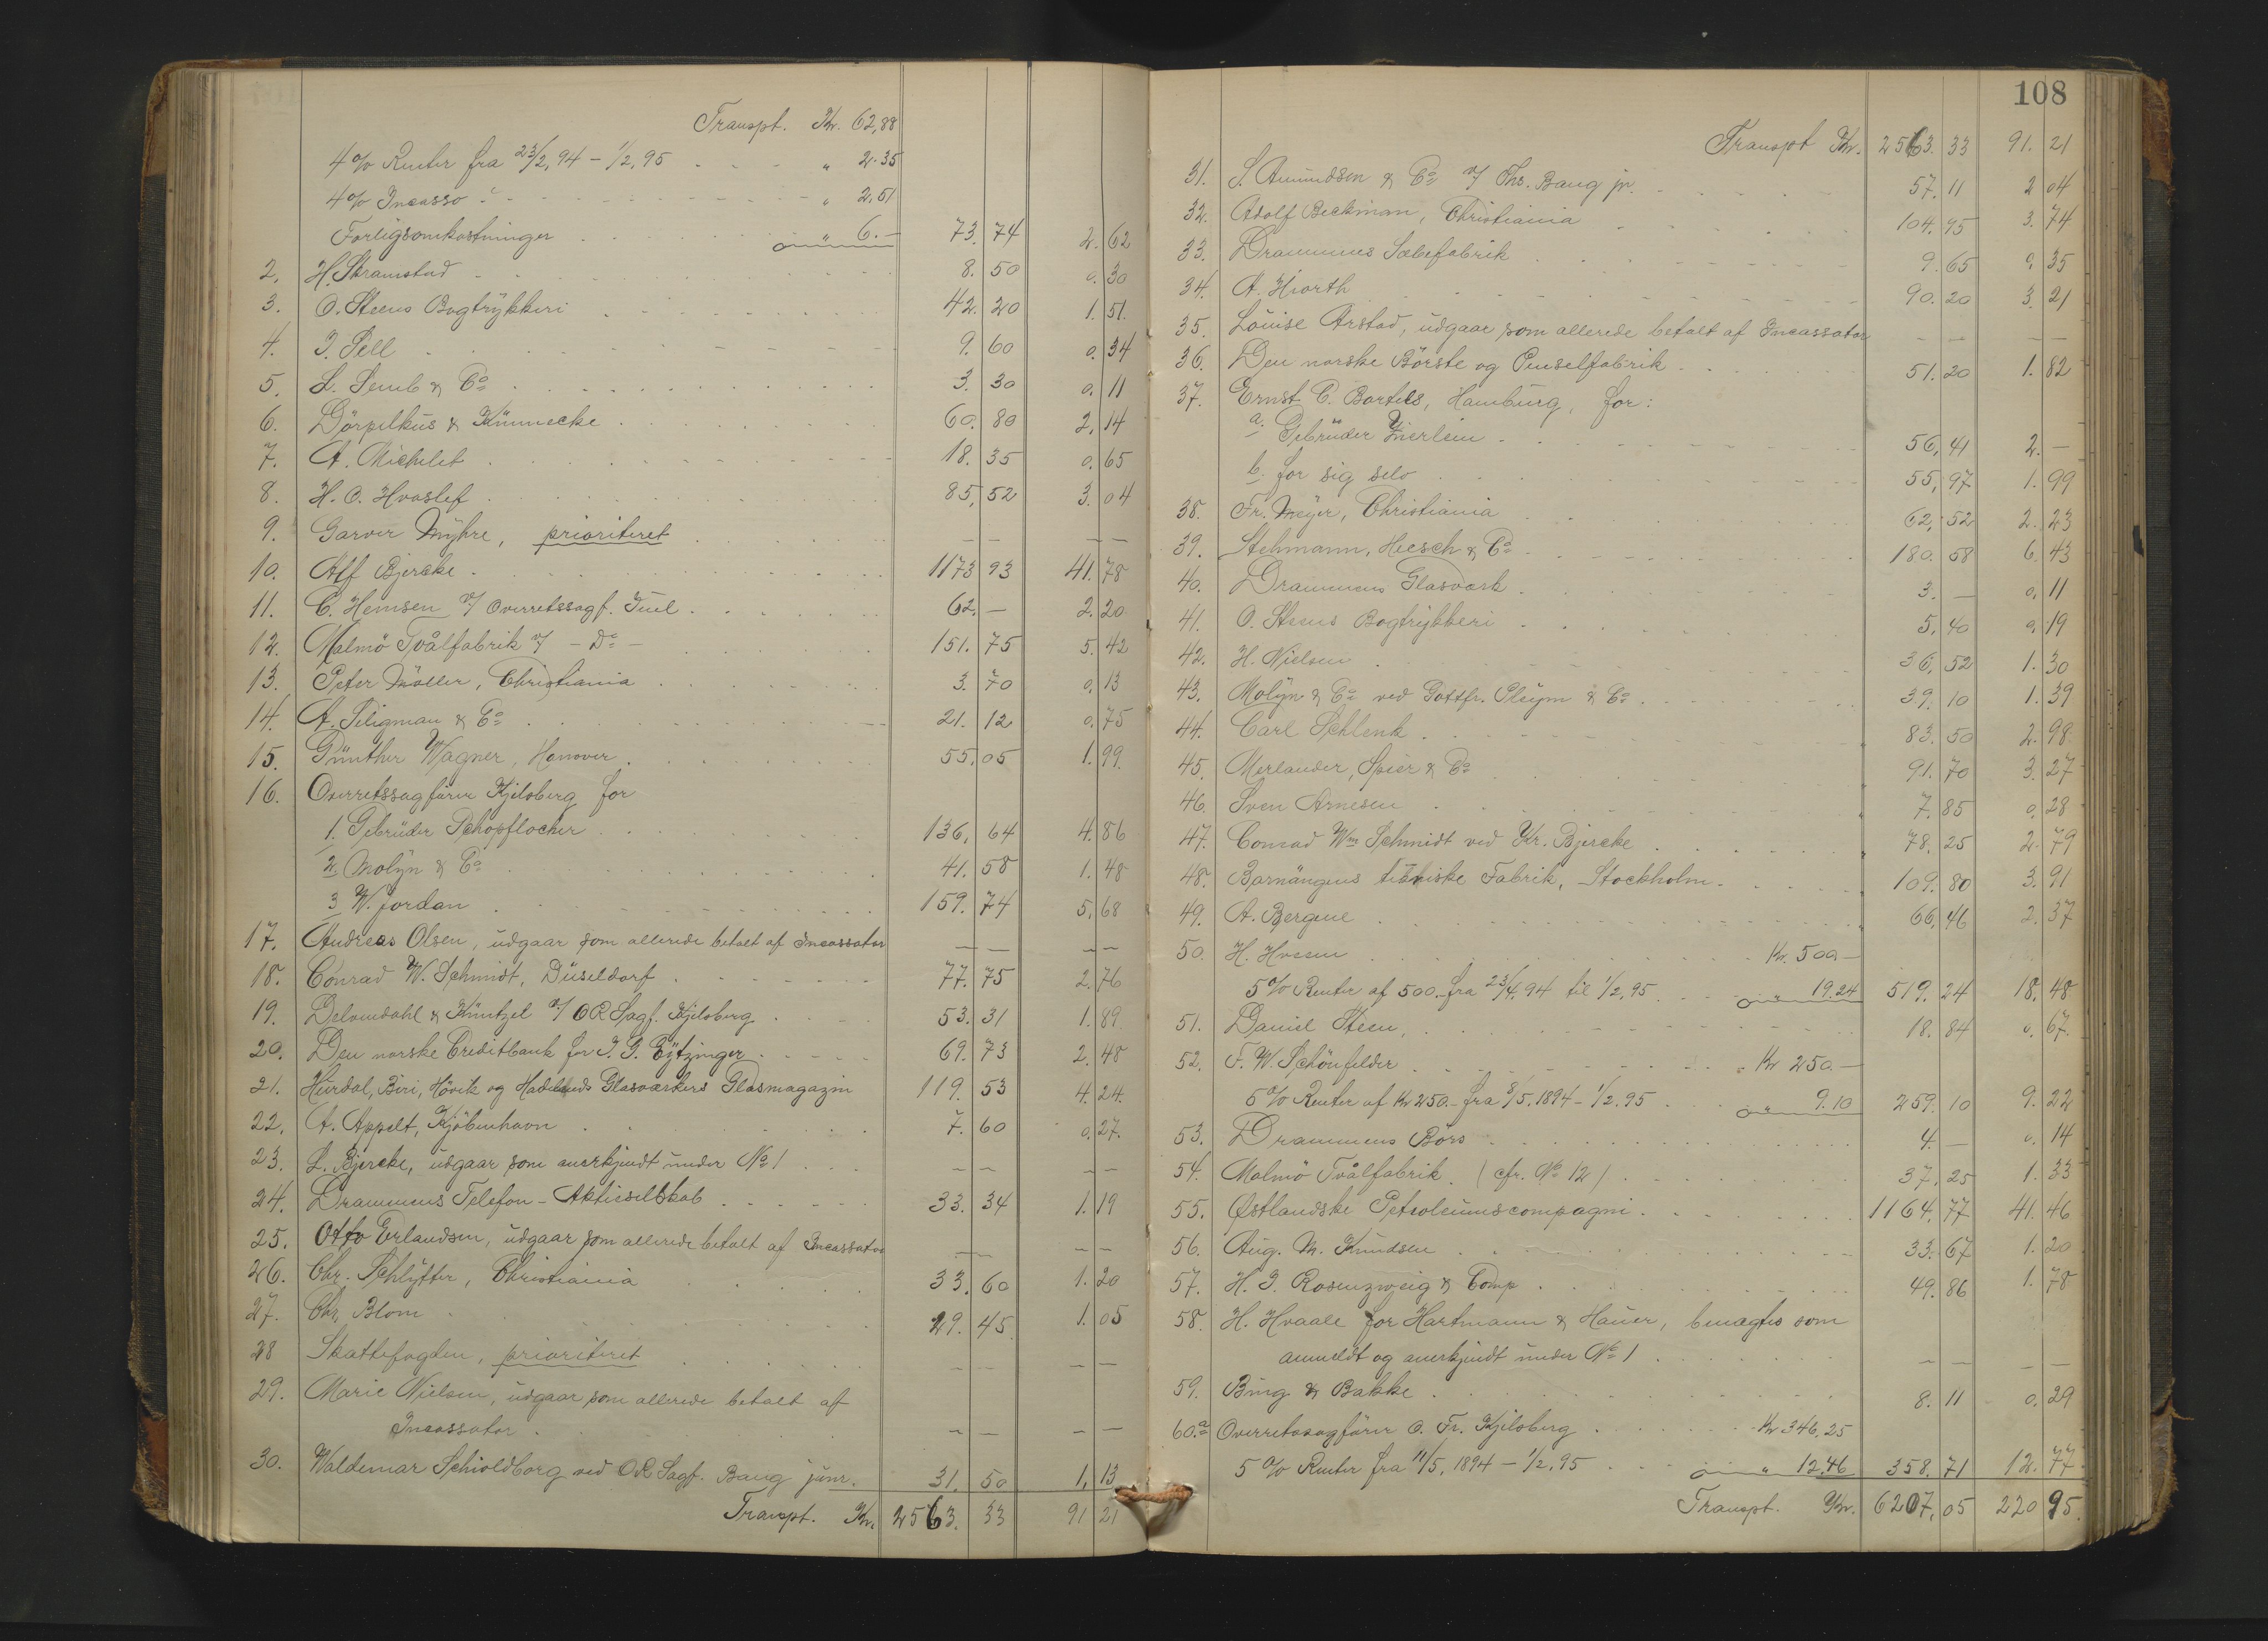 Transpt. Kr. 62,88
4 % Renter fra 23/2,94 - 1/2,95 " 2.35 
4 % Incasso " 2,51
Forligsomkostninger " 6.- 73.74 2.62
2. H. Skramstad 8.50 0.30
3. O. Steens Bogtrykkeri 42.20 1.51
4. J. Sell 9.60 0.34
5. L. Semb & Co 3.30 0.11
6. Dörpelkus & Kümmecke 60.80 2,14
7. A. Michelet 18.35 0.65
8. H. O. Hvoslef 85,52 3.04
9. Garver Myhre, prioriteret — — — —
10. Alf Bjercke 1173 93 41.78
11. C. Hemsen v/ Overretssagf. Juel 62.- 2.20
12. Malmö Tvålfabrik v/ - Do - 151.75 5.42
13. Peter Möller, Christiania 3.70 0,13
14. A. Seligman & Co 21.12 0.75
15. Günther Wagner, Hanover 55.05 1.99
16. Overretssagförer Kjelsberg for
1. Gebrüder Schopflocher 136,64 4.86
2. Molyn & Co 41.58 1.48
3 W. Jordan 159.74 5,68
17. Andreas Olsen, udgaar som allerede betalt af Incassator — — — —
18. Conrad W. Schmidt, Düseldorf 77.75 2.76
19. Delvendahl & Küntzel v/ O R Sagf. Kjelsberg 53.31 1.89
20. Den norske Creditbank for J. G. Eytzinger 69.73 2.48
21. Hurdal, Biri, Hövik og Hadelands Glasværkers Glasmagazin 119.53 4.24
22. A. Appelt, Kjöbenhavn 7.60 0.27
23. L. Bjercke, udgaar som anerkjendt under No 1 — — — —
24. Drammens Telefon-Aktieselskab 33.34 1.19
25. Otto Erlandsen, udgaar som allerede betalt af Incassator — — — —
26. Chr. Schlytter, Christiania 33.60 1.20
27. Chr. Blom 29.45 1.05
28 Skattefogden, prioriteret — — — —
29. Marie Nielsen, udgaar som allerede betalt af
Incassator — — — —
30. Waldemar Schioldborg ved O R Sagf. Bang junr. 31.50 1,13
Transpt. Kr. 2563.33 91 21
108
Transpt Kr. 2563.33 91.21
31. S. Amundsen & Co v/ Ths. Bang jr. 57.11 2 04
32. Adolf Beckman, Christiania 104.95 3.74
33. Drammens Sæbefabrik 9.65 0,35
34. A. Hiorth 90.20 3.21
35. Louise Arstad, udgaar som allerede betalt af Incassator — — — —
36. Den norske Börste og Penselfabrik 51.20 1.82
37. Ernst C. Bartels, Hamburg, for:
a. Gebrüder Zierlein 56,41 2.-
b. for sig selv 55,97 1.99
38. Fr. Meyer, Christiania 62,52 2.23
39. Stehmann, Heesch & Co 180.58 6.43
40. Drammens Glasværk 3.- 0,11
41. O. Steens Bogtrykkeri 5,40 0,19
42. H. Nielsen 36,52 1.30
43. Molyn & Co ved Gottfr. Pleym & Co 39.10 1.39
44. Carl Schlenk 83.50 2.98
45. Merlander, Speier & Co 91.70 3.27
46. Sven Arnesen 7.85 0,28
47. Conrad Wm Schmidt ved Kr. Bjercke 78.25 2.79
48. Barnängens tekniske Fabrik, Stockholm 109.80 3.91
49. A. Bergene 66,46 2.37
50. H. Kr. 500-
5 % Renter af 500.- fra 23/4,94 til 1/2,95 " 19.24 519.24 18.48
51. Daniel Steen 18.84 0.67
52. F. W. Schönfelder Kr 250.-
5 % Renter af Kr 250.- fra 8/5.1894 - 1/2.95 " 9.10 259.10 9.22
53. Drammens Börs 4.- 0.14
54. Malmö Tvålfabrik. (cfr. No 12) 37.25 1.33
55. Østlandske Petroleumscompagni 1164.77 41.46
56. Aug. M. Knudsen 33.67 1.20
57. H. J. Rosenzweig & Comp 49.86 1.78
58. H. Hvaale for Hartmann & Hauer, benægtes som
anmeldt og anerkjendt under No 1 — — — —
59. Bing & Bakke 8.11 0.29
60.a Overretssagförer O. Fr. Kjelsberg Kr 346.25
5 % Renter fra 11/5.1894 - 1/2.95 " 12.46 358.71 12.77
Transpt. Kr. 6207,05 220 95.